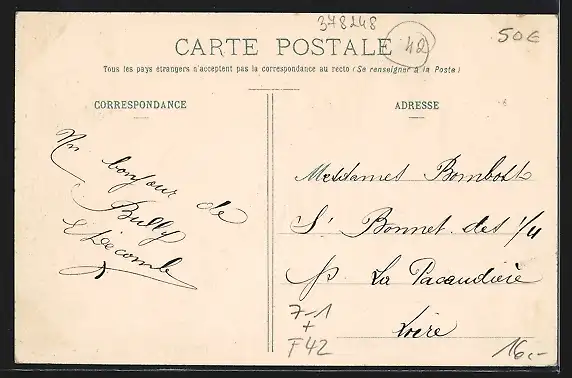 378248
CARTE POSTALE
42
50€
Tous les pays étrangers n'acceptent pas la correspondance au recto (Se renseigner à la Poste)
CORRESPONDANCE
Un bonjour de
Bully
E Lecomte
ADRESSE
Mesdames Bombost
St Bonnet des 1/4
p. La Pacaudière
Loire
7-1
+
F42
16,-